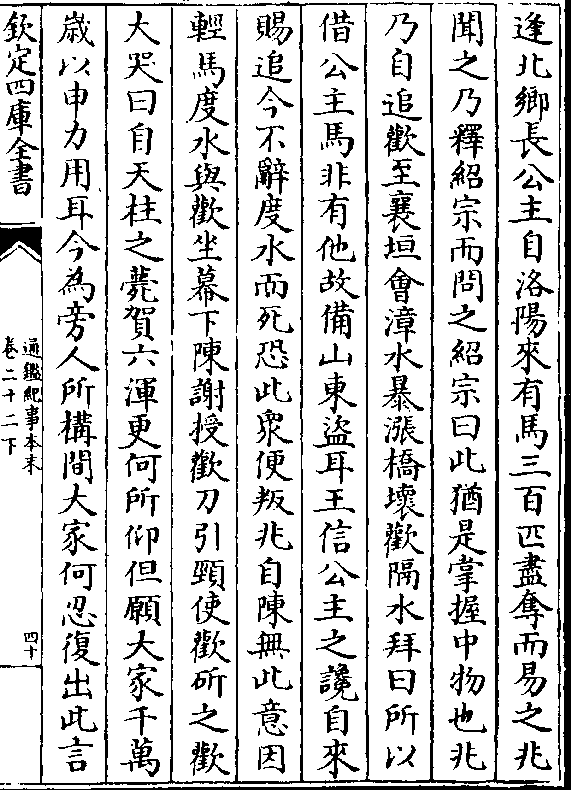 逢北鄉長公主自洛陽來有馬三百匹盡奪而易之兆
聞之乃釋紹宗而問之紹宗曰此猶是掌握中物也兆
乃自追歡至襄垣會漳水暴漲橋壞歡隔水拜曰所以
借公主馬非有他故備山東盜耳王信公主之讒自來
賜追今不辭度水而死恐此衆便叛兆自陳無此意因
輕馬度水與歡坐幕下陳謝授歡刀引頸使歡斫之歡
大哭曰自天柱之薨賀六渾更何所仰但願大家千萬
歲以申力用耳今為旁人所構間大家何忍復出此言
欽定四庫全書
通鑑紀事本末
卷二十二下
四十